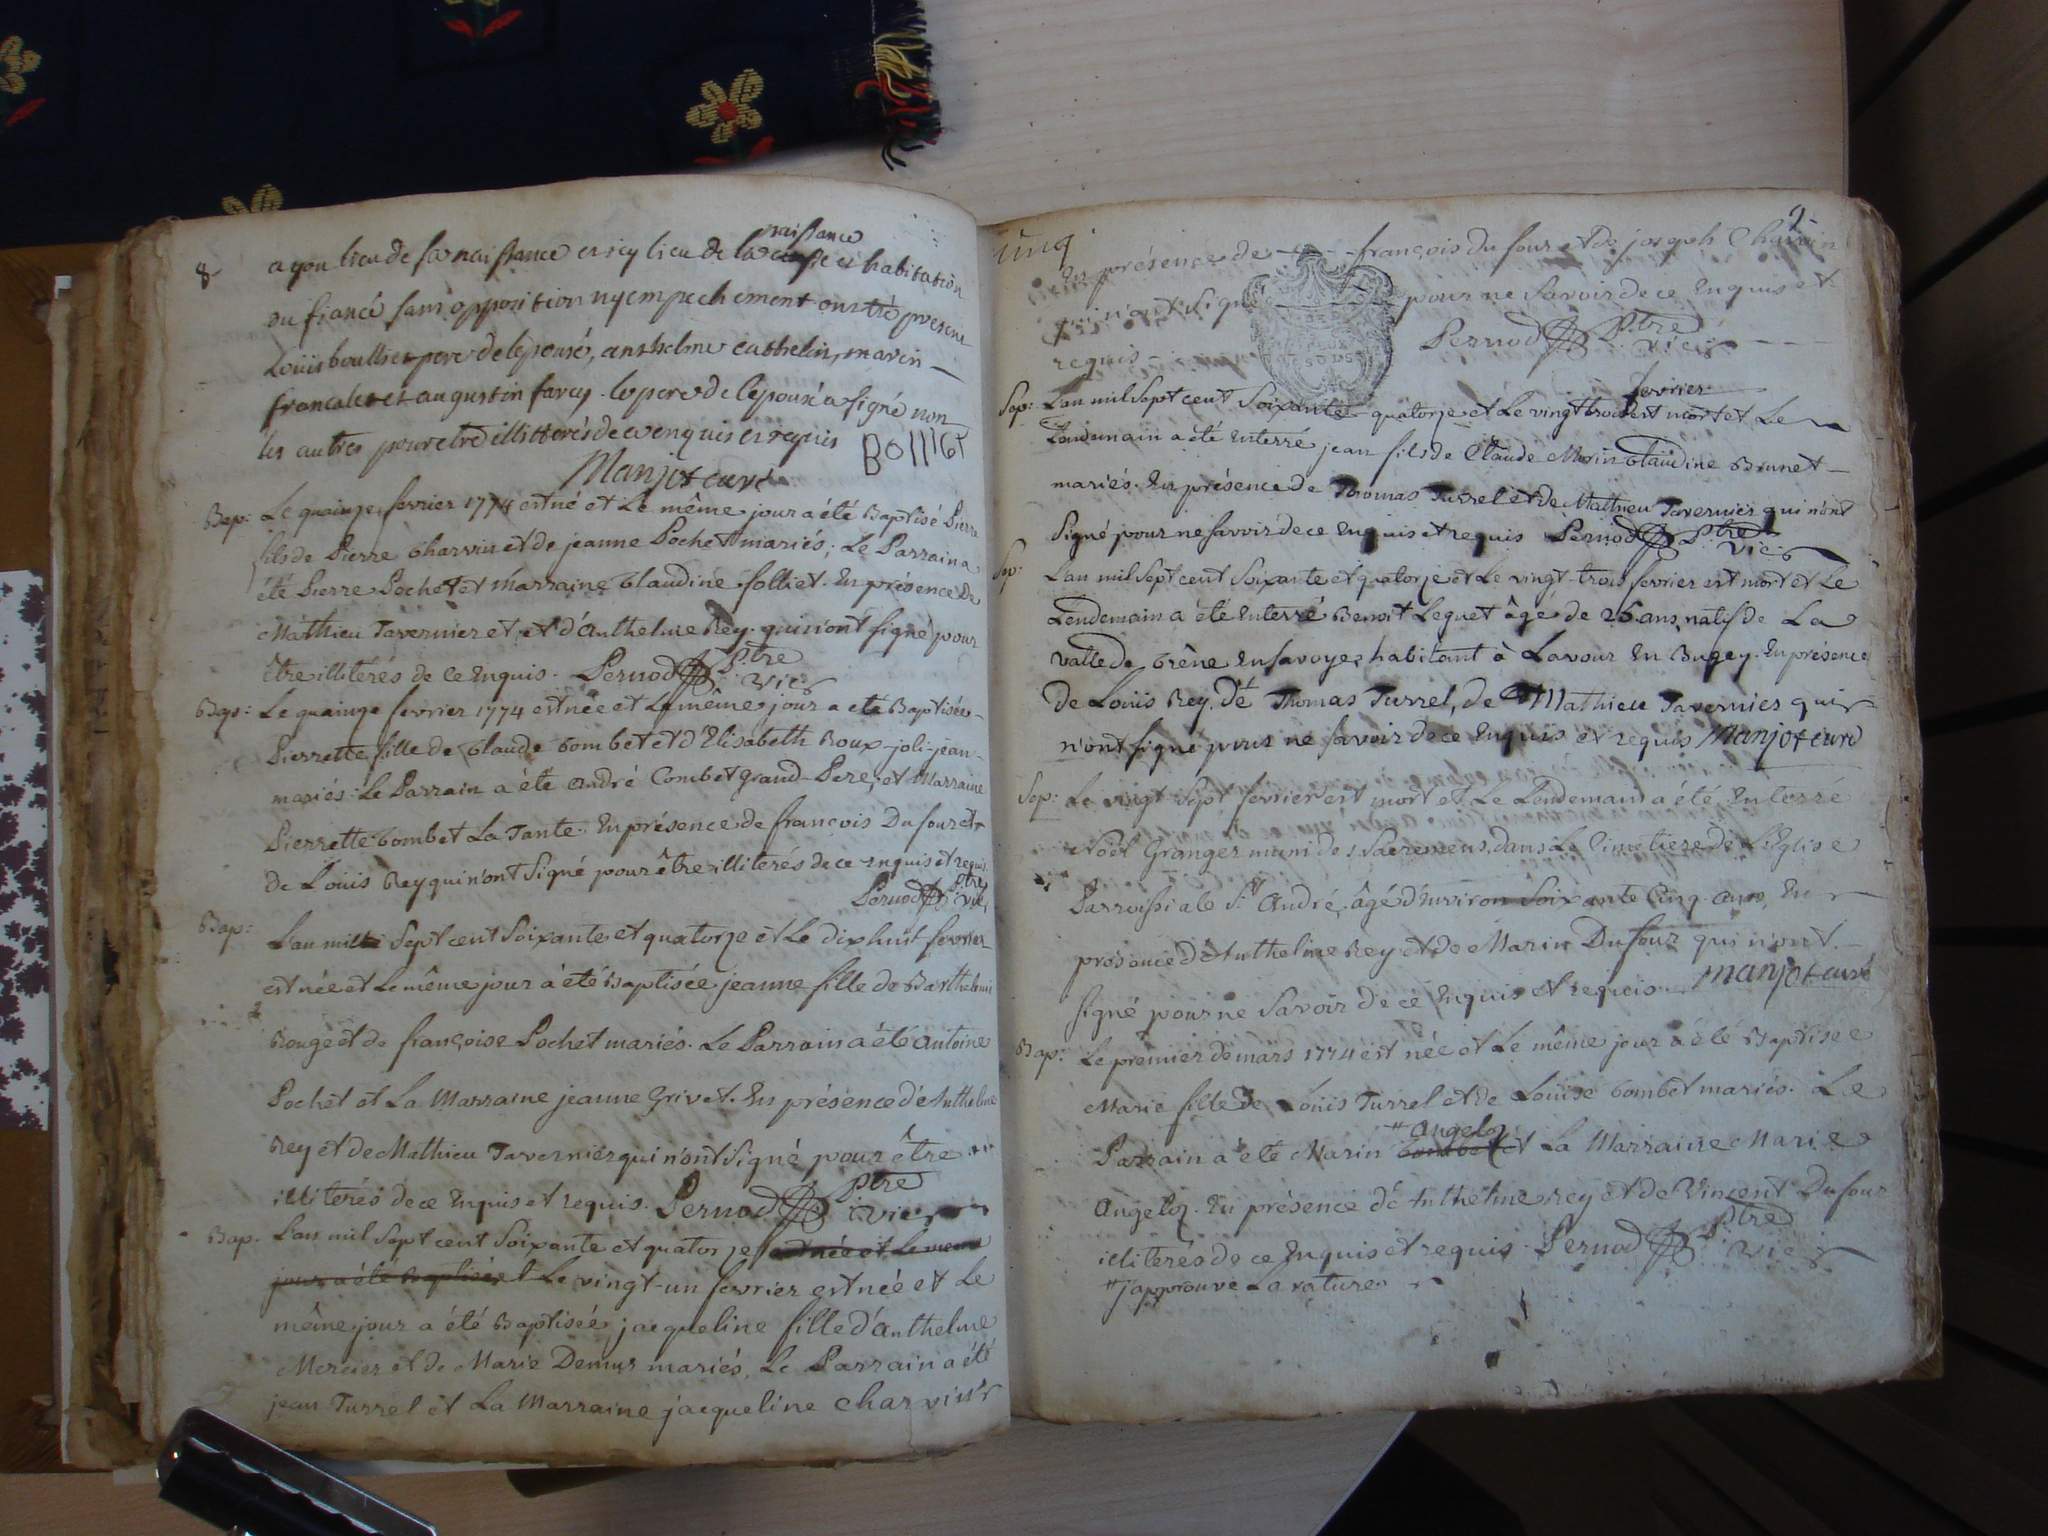 8
naissance
a yon lieu de sa naissance et icy lieu de la et habitation
du fiancé sans opposition ny empechement ont été present
Loüis boullier pere de lepousé, anthelme cathelin, marin
francalet et augustin farcy. le pere de l'epoux a signé non
les autres pour etre illitterés de ce enquis et requis
Manjot curé
BO11161
Bap: Le quainze fevrier 1774 est né et Le même jour a été Baptisé Pierre
fils de Pierre Charvin et de jeanne Pochet mariés; Le Parrain a
été Pierre Pochet et Marraine Claudine folliet. En présence de
Mathieu Tavernier et et d'Anthelme Rey. qui n'ont signé pour
être illiterés de ce Enquis. Pernod Ptre
vic
Bap: Le quainze fevrier 1774 est née et Le même jour a eté Baptisée
Pierrette fille de Claude Combet et d'Elisabeth Roux-joli-jean
mariés. Le Parrain a été André Combet grand-Pere, et Marraine
Pierrette Combet La Tante. En présence de françois Dufour et
de Loüis Rey qui n'ont Signé pour être illiterés de ce enquis et requis
Pernod Ptre vic
Bap: L'an mille Sept cent Soixante et quatorze et Le dixhuit fevrier
est née et Le même jour a été Baptisée jeanne fille de Barthelemi
Rouge et de françoise Pochet mariés. Le Parrain a été Antoine
Pochet et La Marraine jeanne Grivet. En présence d'Anthelme
Rey et de Mathieu Tavernier qui n'ont Signé pour être
illiterés de ce Enquis et requis. Pernod Ptre
vic
Bap. L'an mil Sept cent Soixante et quatorze est née et Le même
jour a été Baptisée Le vingt-un fevrier est née et Le
même jour a été Baptisée jacqueline fille d'Anthelme
Mercier et de Marie Demur mariés, Le Parrain a été
jean Turrel et La Marraine jacqueline Charvin
9
cinq
En présence de françois du four et de joseph Charvin
qui n'ont signé pour ne Savoir de ce Enquis et
requis Pernod Ptre
vic
fevrier
Sep: L'an mil Sept cent Soixante-quatorze et Le vingt trois est mort et Le
Lendemain a été Enterré jean fils de Claude Morin Claudine Brunet
mariés. En présence de Thomas Turrel et de Mathieu Tavernier qui n'ont
Signé pour ne Savoir de ce Enquis et requis Pernod Ptre
vic
Sep: L'an mil Sept cent Soixante et quatorze et Le vingt-trois fevrier est mort et Le
Lendemain a été Enterré Benoit Leguet âgé de 26 ans, natif de La
valle de Crêne En Savoye, habitant à Lavour En Bugey. En présence
de Loüis Rey, de Thomas Turrel, de Mathieu Tavernier qui
n'ont signé pour ne Savoir de ce Enquis et requis Manjot curé
Sep: Le vingt Sept fevrier est mort et Le Lendemain a été Enterré
Noël Granger muni des Sacremens, dans Le Cimetiere de L'Eglise
Parroissiale St. André, âgé d'Environ Soixante Cinq ans, En
présence d'Anthelme Rey et de Marin Dufour qui n'ont
signé pour ne Savoir de ce Enquis et requis. Manjot curé
Bap: Le premier de mars 1774 est née et Le même jour a été Baptisée
Marie fille de Loüis Turrel et de Louise Combet mariés. Le
# Angeloz
Parrain a été Marin Combet et La Marraine Marie
Angeloz. En présence d'Anthelme Rey et de Vincent Dufour
illiterés de ce Enquis et requis. Pernod Ptre
vic
# j'approuve La rature